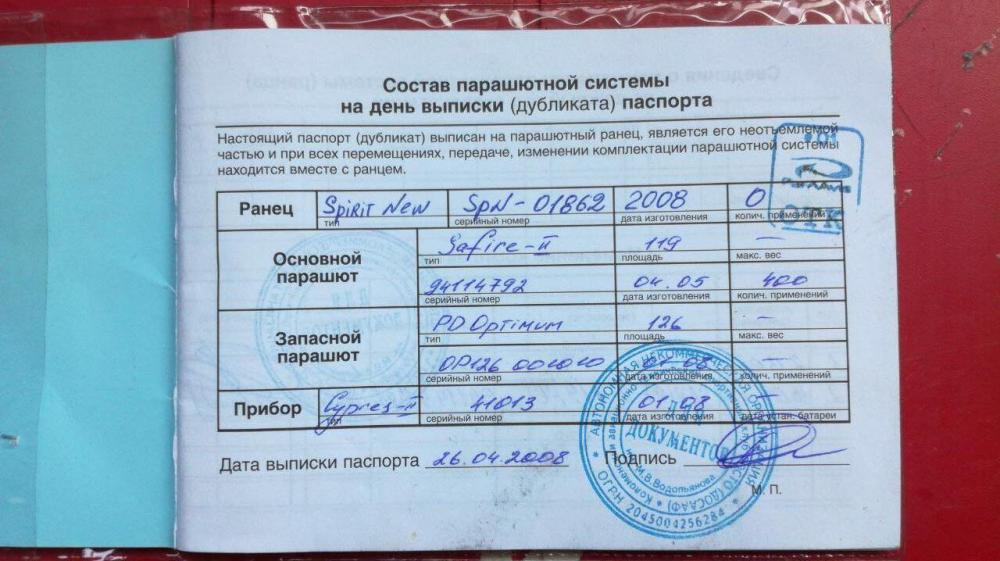 Состав парашютной системы
на день выписки (дубликата) паспорта
Настоящий паспорт (дубликат) выписан на парашютный ранец, является его неотъемлемой
частью и при всех перемещениях, передаче, изменении комплектации парашютной системы
находится вместе с ранцем.
Ранец Spirit New SPN-01862 2008 0
тип серийный номер дата изготовления колич. применений
ОТК
Основной парашют
Safire-II 119 —
тип площадь макс. вес
94114792 04.05 400
серийный номер дата изготовления колич. применений
Запасной парашют
PD Optimum 126 —
тип площадь макс. вес
OP126 001010 01-08 —
серийный номер дата изготовления колич. применений
Прибор Cypres-II 41013 01.08 —
тип серийный номер дата изготовления дата устан. батареи
Дата выписки паспорта 26.04.2008 Подпись
М. П.
АВТОНОМНАЯ НЕКОММЕРЧЕСКАЯ ОРГАНИЗАЦИЯ
ДЛЯ
ДОКУМЕНТОВ
М.В.Водопьянова
РОСТО (ДОСААФ)
ОГРН 2045004256284